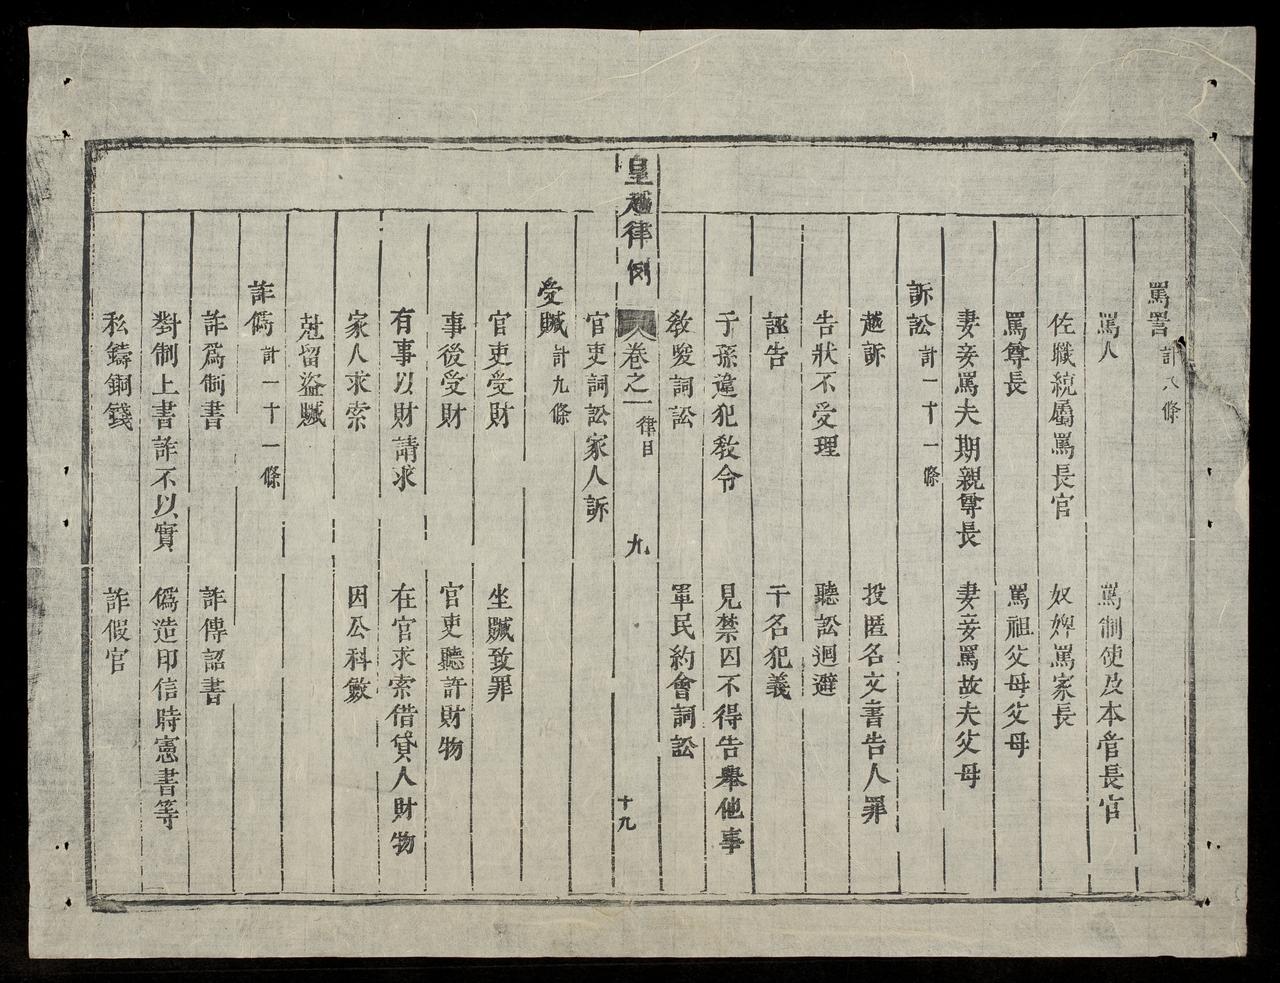 罵詈計八條
罵人 罵制使及本管長官
佐職統屬罵長官 奴婢罵家長
罵尊長 罵祖父母父母
妻妾罵夫期親尊長 妻妾罵故夫父母
訴訟計一十一條
越訴 投匿名文書告人罪
告狀不受理 聽訟迴避
誣告 干名犯義
子孫違犯敎令 見禁囚不得告舉他事
敎唆詞訟 軍民約會詞訟
皇越律例 卷之一 律目 九 十九
官吏詞訟家人訴
受贓計九條
官吏受財 坐贓致罪
事後受財 官吏聽許財物
有事以財請求 在官求索借貸人財物
家人求索 因公科斂
尅留盜贓
詐僞計一十一條
詐爲制書 詐傳詔書
對制上書詐不以實 僞造印信時憲書等
私鑄銅錢 詐假官